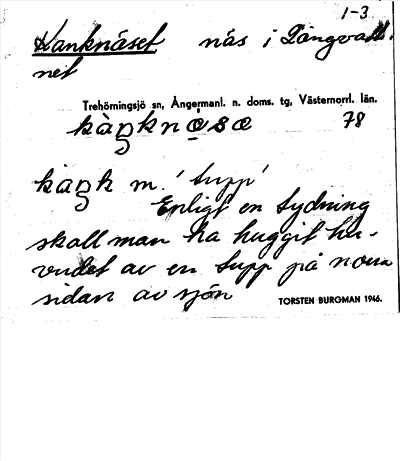 1-3
Kanknäset näs i Långvatt-
net
Trehörningsjö sn, Ångermanl. n. doms. tg, Västernorrl. län.
78
m. 'tupp'
Enligt en tydning
skall man ha huggit hu-
vudet av en tupp på norra
sidan av sjön
TORSTEN BURGMAN 1946.